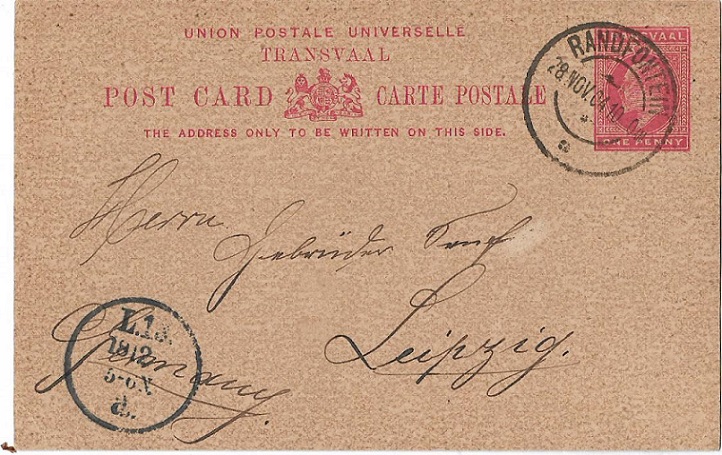 UNION POSTALE UNIVERSELLE
TRANSVAAL
POST CARD CARTE POSTALE
THE ADDRESS ONLY TO BE WRITTEN ON THIS SIDE.
TRANSVAAL
ONE PENNY
RANDFONTEIN
28 NOV. 04
Herrn
Gebrüder Senf
Leipzig.
Germany
L.13.